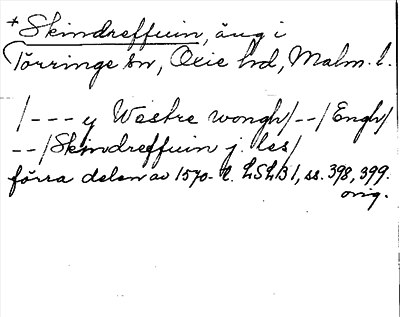 *Skindreffuin, äng i
Törringe sn, Oxie hd, Malm. l.
/--- y Westre wongh/--/Engh/
--/Skindreffuin j. les/
förra delen av 1570-t. LSLB1, ss. 398, 399.
orig.